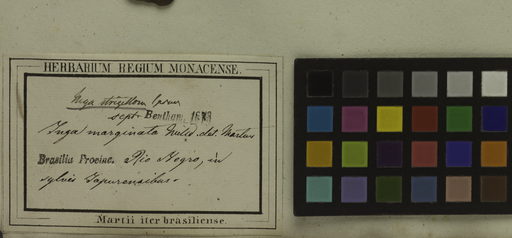 HERBARIUM REGIUM MONACENSE.
Inga
sept. Bentham, 18
Inga marginata Willd. det. Martius
Brasilia Provinc. Rio Negro, in
sylvis Japurensibus.
Martii iter brasiliense.